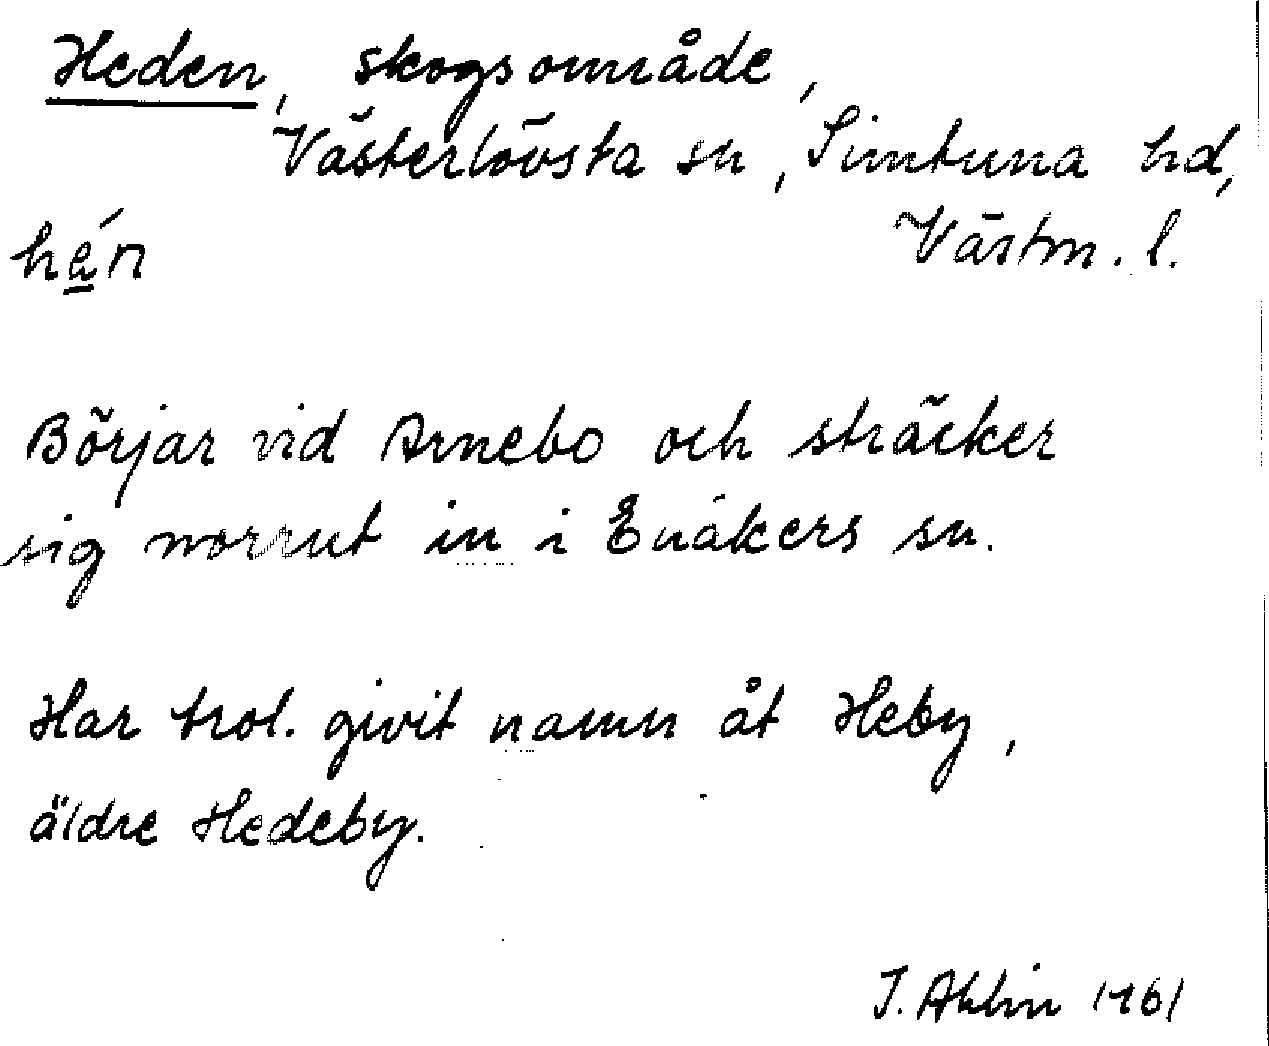 Heden, skogsområde,
Västerlövsta sn, Simtuna hd,
Västm. l.
hén
Börjar vid Arnebo och sträcker
sig norrut in i Enåkers sn.
Har trol. givit namn åt Heby,
äldre Hedeby.
J. Ahlin 1961